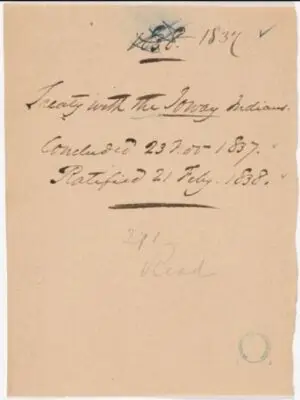 1837
Treaty with the Ioway Indians.
Concluded 23 Nov 1837.
Ratified 21 Feby. 1838.
Read